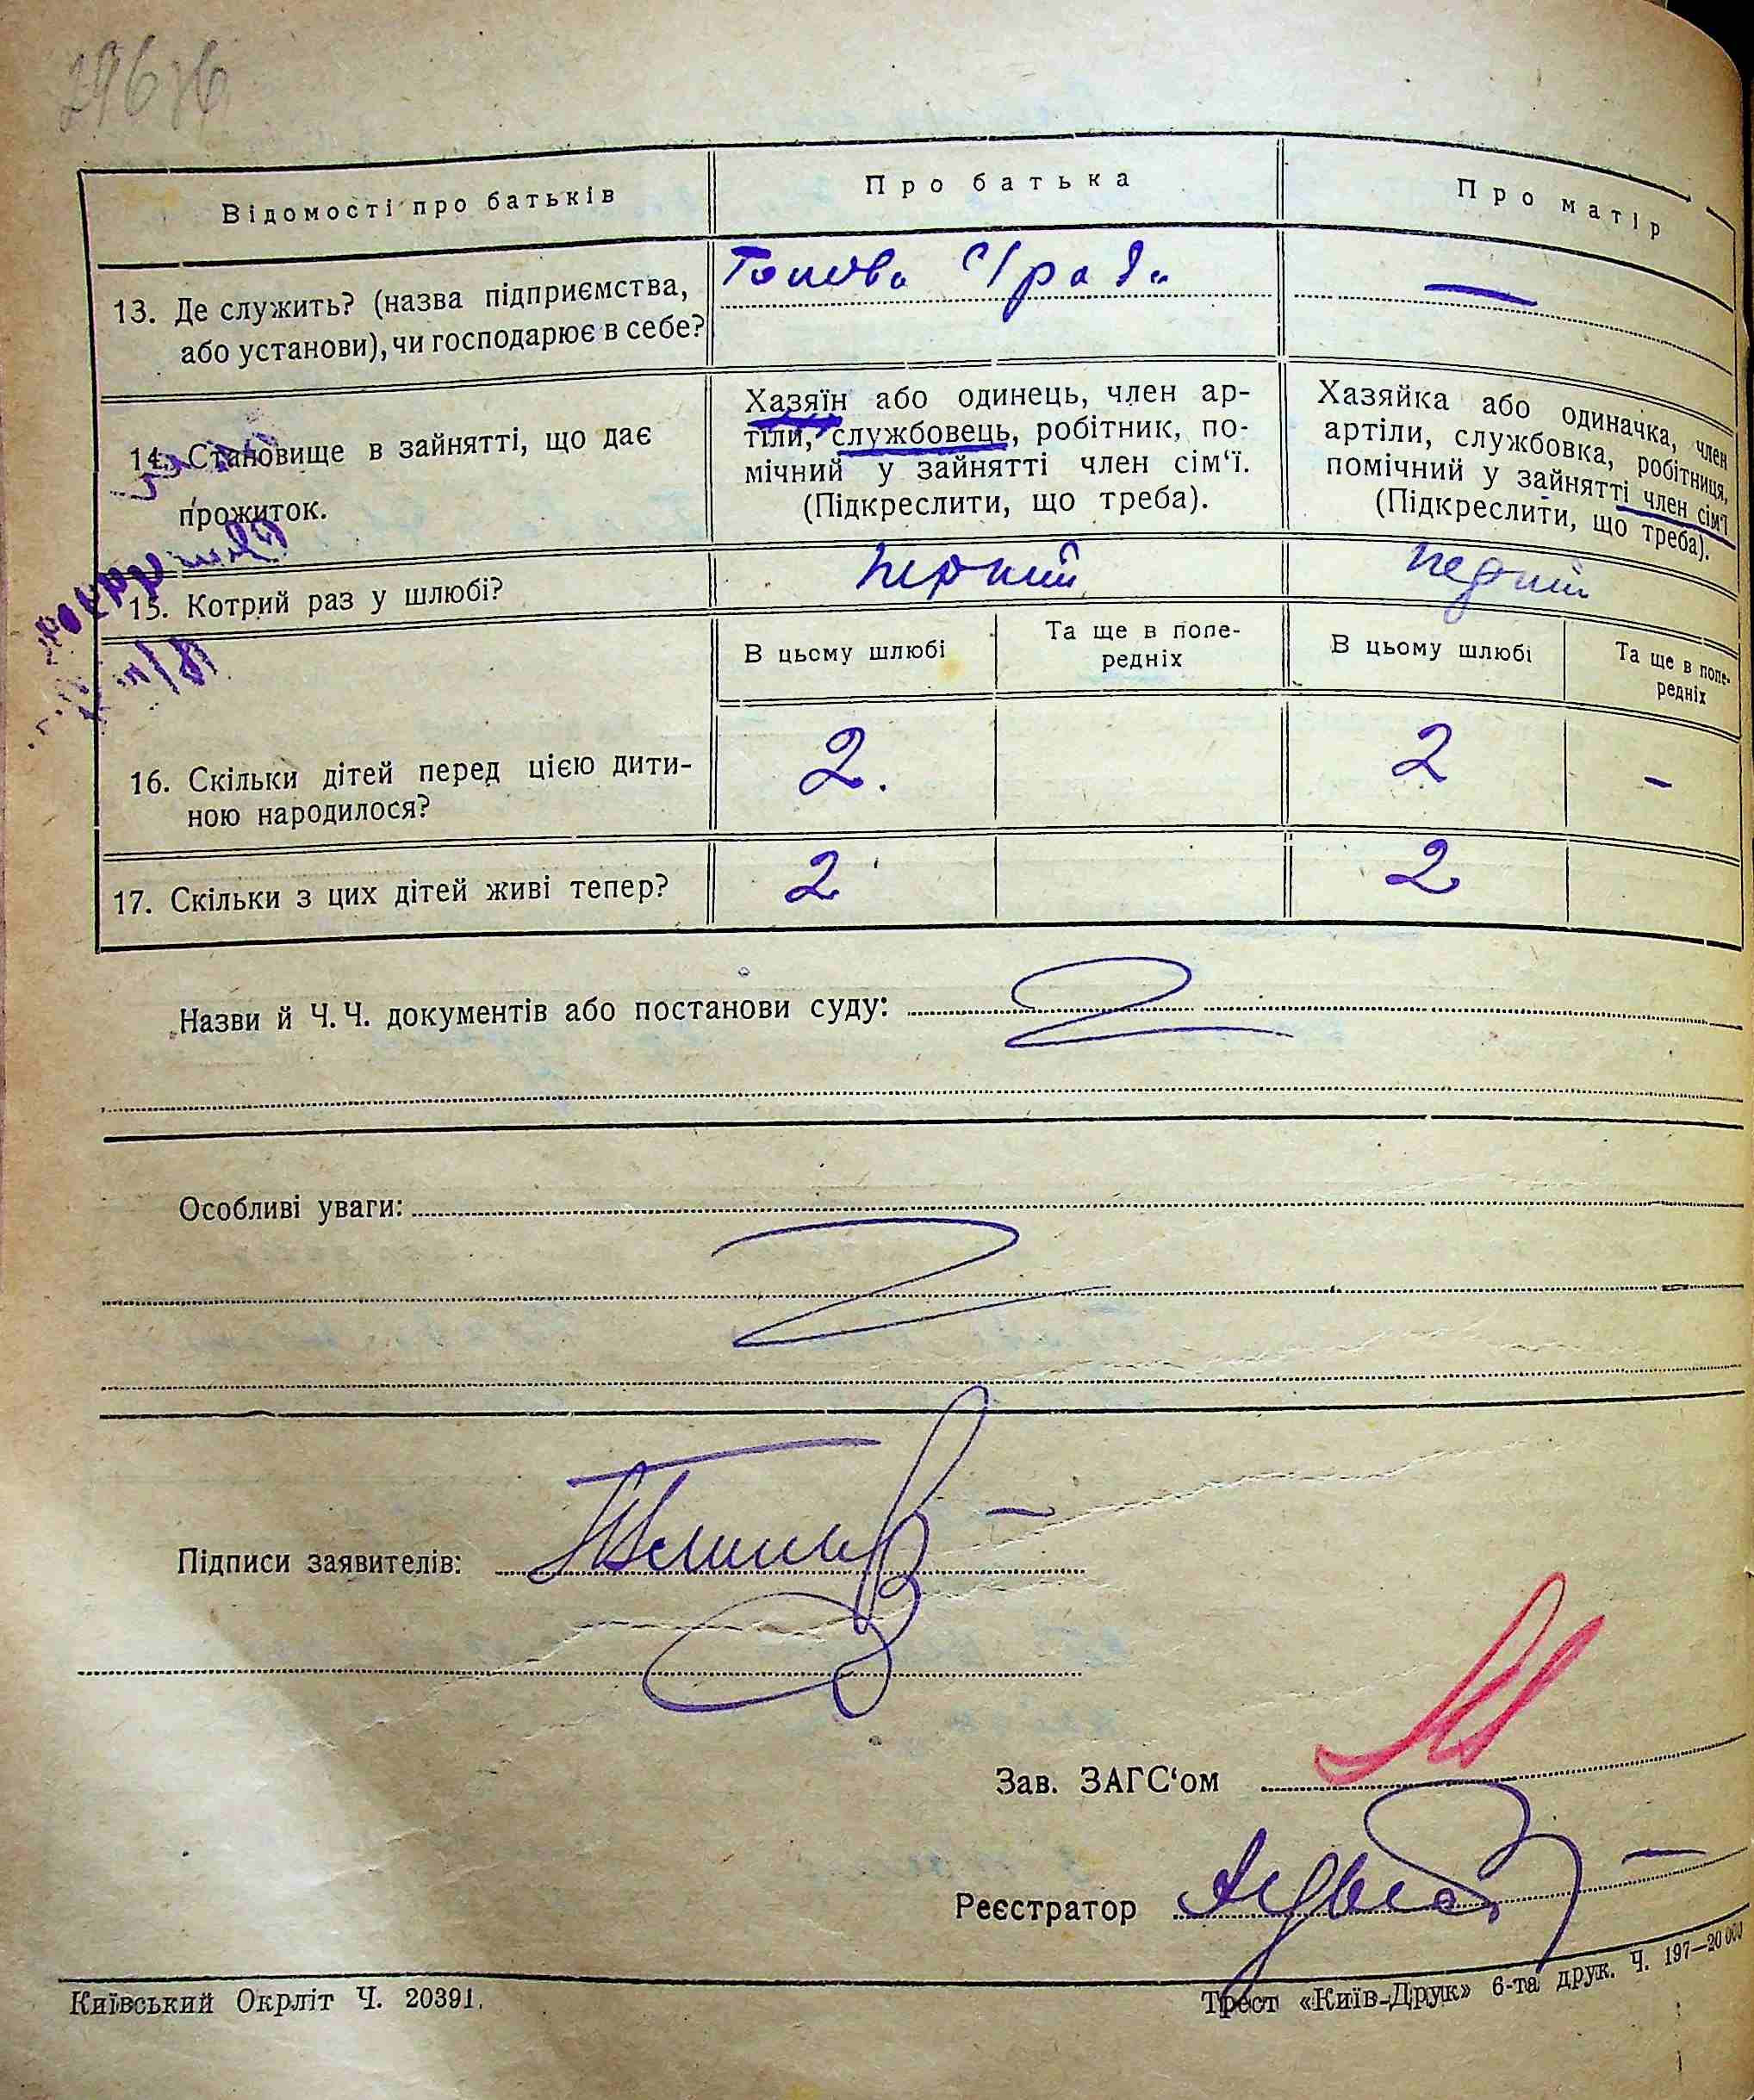 Відомості про батьків
Про батька
Про матір
13. Де служить? (назва підприємства,
або установи), чи господарює в себе?
—
14. Становище в зайнятті, що дає
прожиток.
Хазяїн або одинець, член ар-
тіли, службовець, робітник, по-
мічний у зайнятті член сім‘ї.
(Підкреслити, що треба).
Хазяйка або одиначка, член
артіли, службовка, робітниця,
помічний у зайнятті член сім‘ї
(Підкреслити, що треба).
15. Котрий раз у шлюбі?
первий
первий
В цьому шлюбі
Та ще в попе-
редніх
В цьому шлюбі
Та ще в попе-
редніх
16. Скільки дітей перед цією дити-
ною народилося?
2.
2
-
17. Скільки з цих дітей живі тепер?
2
2
Назви й Ч. Ч. документів або постанови суду:
Особливі уваги:
Підписи заявителів:
Зав. ЗАГС‘ом
Реєстратор
Київський Окрліт Ч. 20391.
Трест «Київ-Друк» 6-та друк. Ч. 197—20 000